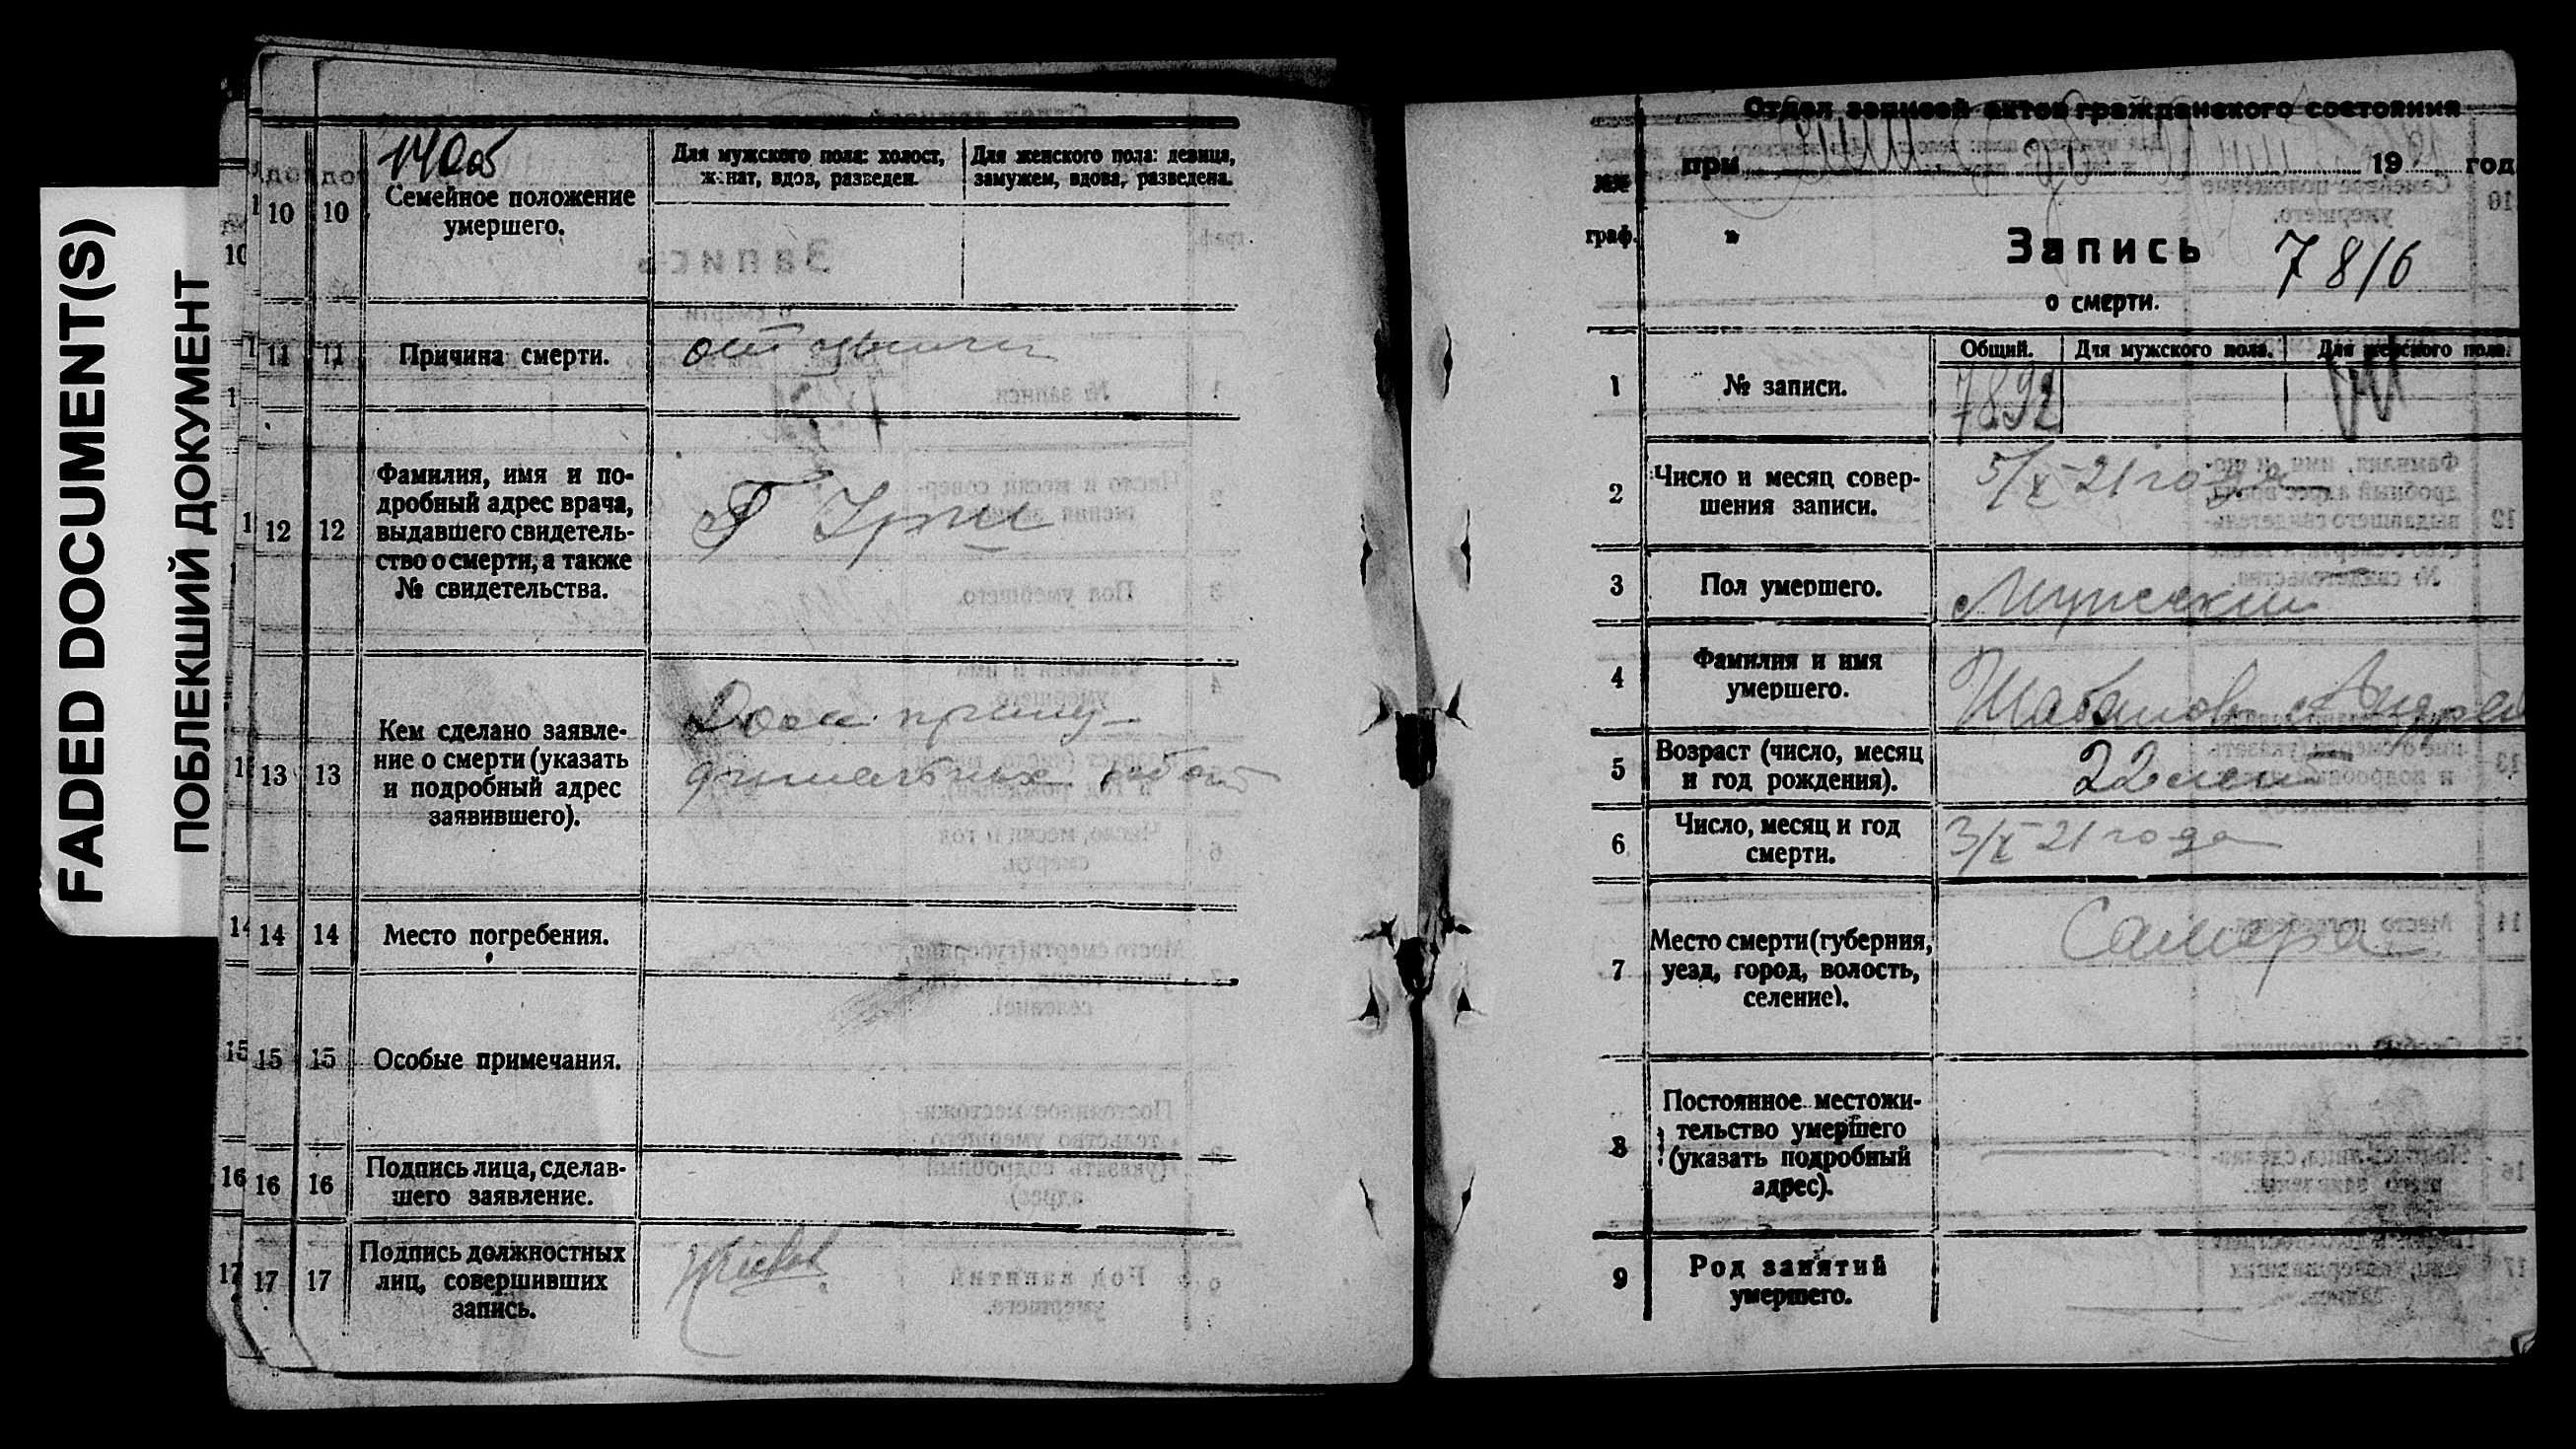 FADED DOCUMENT(S)
ПОБЛЕКШИЙ ДОКУМЕНТ
10
10
Семейное положение
умершего.
Для мужского пола: холост,
женат, вдов, разведен.
Для женского пола: девица,
замужем, вдова, разведена.
11
11
Причина смерти.
от
12
12
Фамилия, имя и по-
дробный адрес врача,
выдавшего свидетель-
ство о смерти, а также
№ свидетельства.
13
13
Кем сделано заявле-
ние о смерти (указать
и подробный адрес
заявившего).
Дом прину-
дительных работ
14
14
14
Место погребения.
15
15
15
Особые примечания.
16
16
16
Подпись лица, сделав-
шего заявление.
17
17
17
Подпись должностных
лиц, совершивших
запись.
Отдел записей актов гражданского состояния
при 19 год
№№
граф.
Запись 7816
о смерти.
1
№ записи.
Общий.
Для мужского пола.
Для женского пола.
7892
2
Число и месяц совер-
шения записи.
5/X-21 года
3
Пол умершего.
Мужской
4
Фамилия и имя
умершего.
Шабанов Андрей
5
Возраст (число, месяц
и год рождения).
22 лет
6
Число, месяц и год
смерти.
3/X-21 года
7
Место смерти (губерния,
уезд, город, волость,
селение).
Самара
8
Постоянное местожи-
тельство умершего
(указать подробный
адрес).
9
Род занятий
умершего.